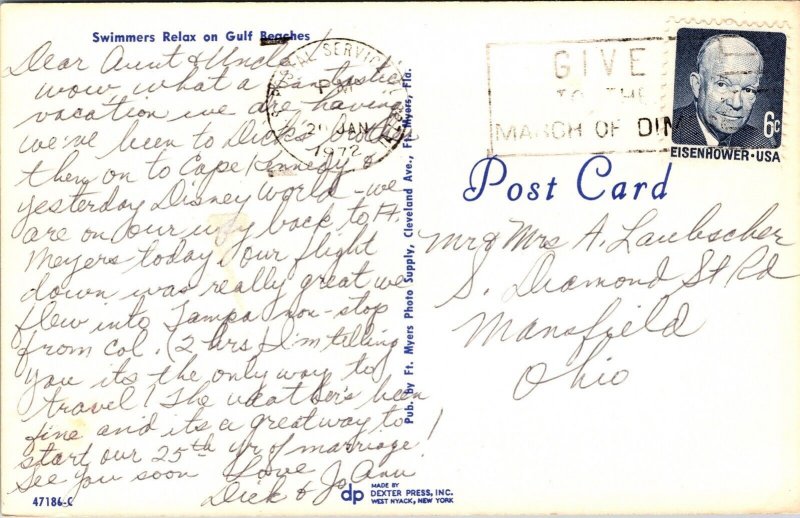 Swimmers Relax on Gulf Beaches
Dear Aunt & Uncle!
wow, what a fantastic
vacation we are having
we've been to Dick's brother
then on to Cape Kennedy &
yesterday Disney World - we
are on our way back to Ft.
Meyers today, our flight
down was really great we
flew into Tampa non-stop
from Col. (2 hrs) I'm telling
you its the only way to
travel! The weather's been
fine and its a great way to
start our 25th yr of marriage!
See you soon Love
Dick & JoAnn
47186-C
Pub. by Ft. Myers Photo Supply, Cleveland Ave., Ft. Myers, Fla.
dp MADE BY
DEXTER PRESS, INC.
WEST NYACK, NEW YORK
POSTAL SERVICE
PM
21 JAN
1972
GIVE
TO THE
MARCH OF DIM
6c
EISENHOWER·USA
Post Card
Mr & Mrs A. Laubscher
S. Diamond St Rd
Mansfield
Ohio